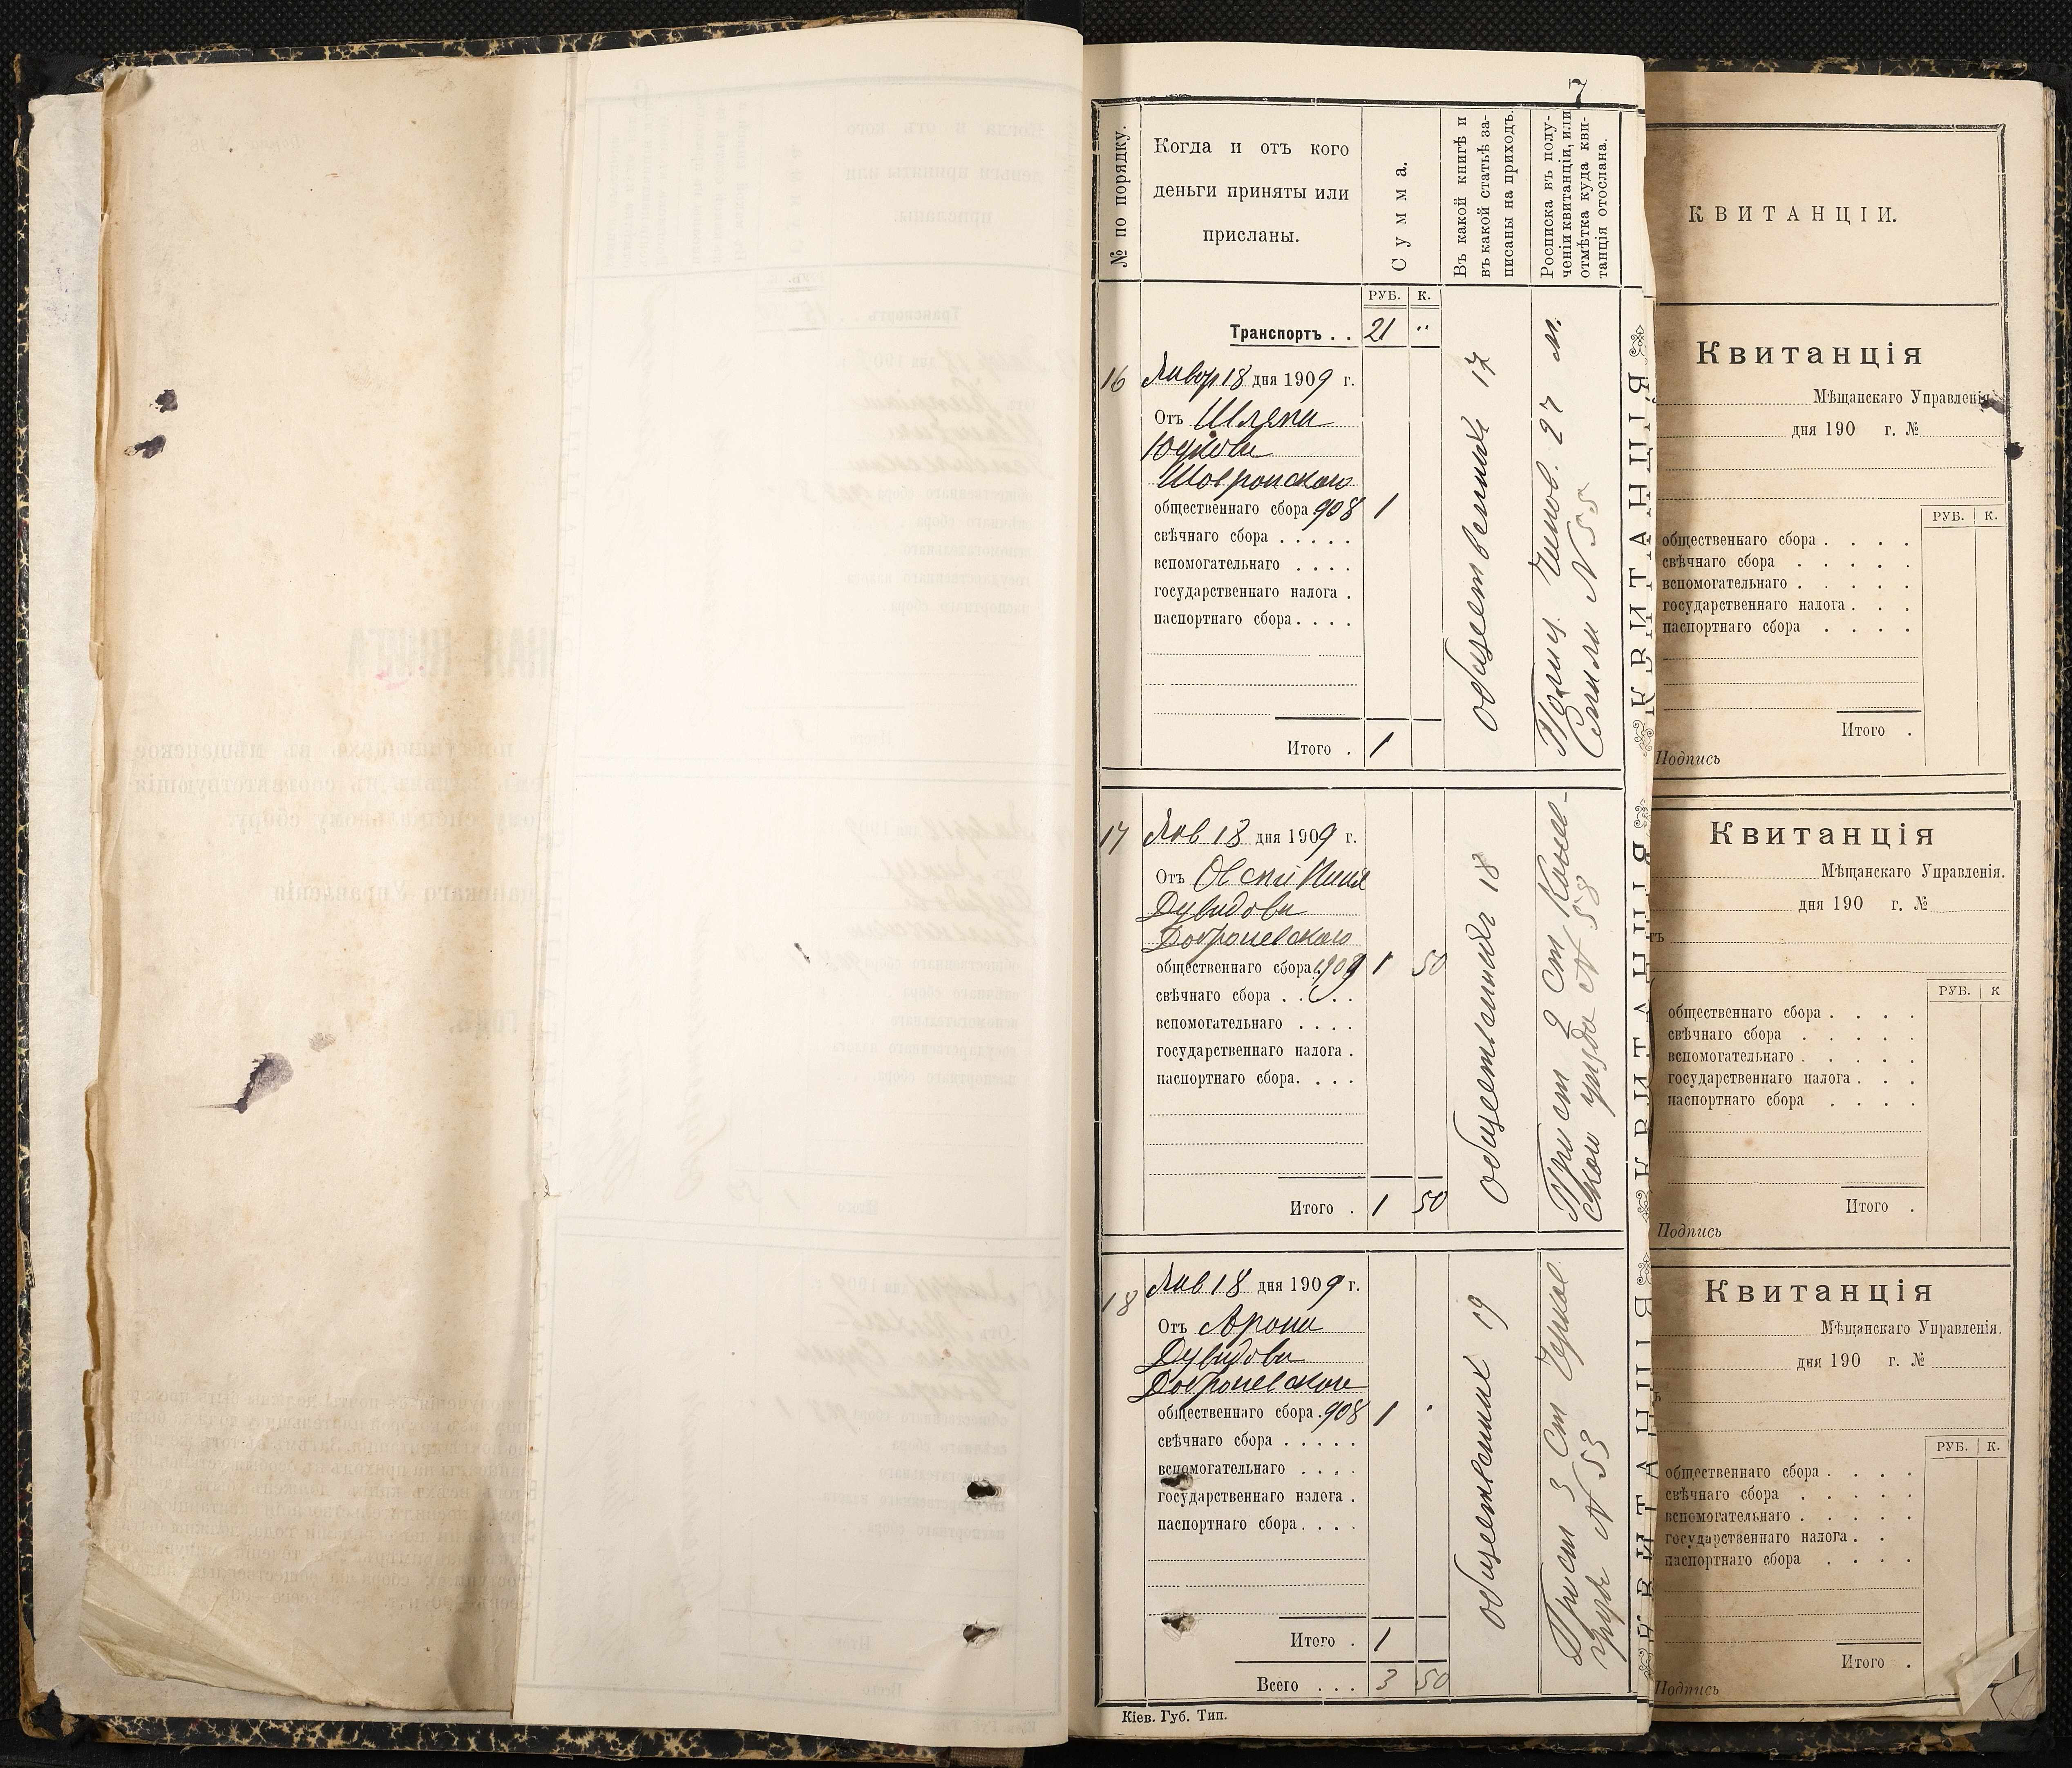 7
№ по порядку.
Когда и отъ кого
деньги приняты или
присланы.
Сумма.
Въ какой книгѣ и
въ какой статьѣ за-
писаны на приходъ.
Росписка въ полу-
ченіи квитанціи, или
отмѣтка куда кви-
танція отослана.
РУБ. К.
Транспортъ . . 21 "
16
Январ 18 дня 1909 г.
Отъ Шляпи
Юдкова
общественнаго сбора 908 1
свѣчнаго сбора . . . . .
вспомогательнаго . . . .
государственнаго налога .
паспортнаго сбора. . . .
Итого . 1
общественный 17
Полиц. 27 м.
Смили N 55
КВИТАНЦІЯ
17
Янв 18 дня 1909 г.
Отъ
Дувидова
Добраневскаго
общественнаго сбора 1909 1 50
свѣчнаго сбора . . . . .
вспомогательнаго . . . .
государственнаго налога .
паспортнаго сбора. . . .
Итого . 1 50
18
Прист 2 Ст Канев-
ском уезда N 58
КВИТАНЦІЯ
18
Янв 18 дня 1909 г.
Отъ Арона
Дувидова
Добраневскаго
общественнаго сбора 908 1
свѣчнаго сбора . . . . .
вспомогательнаго . . . .
государственнаго налога .
паспортнаго сбора. . . .
Итого . 1
Всего . . . 3 50
19
Прист 3 Ст Черкас
уезда N 53
КВИТАНЦІЯ
Кіев. Губ. Тип.
КВИТАНЦІИ.
Квитанція
Мѣщанскаго Управленія.
дня 190 г. №
РУБ. К.
общественнаго сбора . . . .
свѣчнаго сбора . . . . .
вспомогательнаго . . . . .
государственнаго налога . . .
паспортнаго сбора . . . .
Итого .
Подпись
Квитанція
Мѣщанскаго Управленія.
дня 190 г. №
РУБ. К
общественнаго сбора . . . .
свѣчнаго сбора . . . . .
вспомогательнаго . . . . .
государственнаго налога . . .
паспортнаго сбора . . . .
Итого .
Подпись
Квитанція
Мѣщанскаго Управленія.
дня 190 г. №
РУБ. К.
общественнаго сбора . . . .
свѣчнаго сбора . . . . .
вспомогательнаго . . . . .
государственнаго налога . .
паспортнаго сбора . . . .
Итого .
Подпись